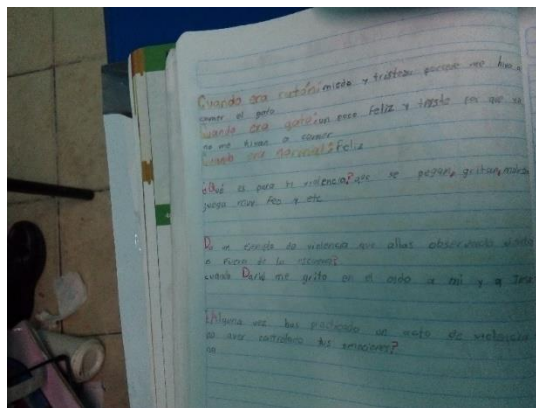 Cuando era ratón: miedo y tristeza porque me iba a
comer el gato
Cuando era gato: un poco feliz y triste por que ya
no me iban a comer
Cuando era normal: feliz
¿Qué es para ti violencia? que se pegan, gritan,
juega muy feo y etc
De un ejemplo de violencia que allas observado dentro
o fuera de la escuela?
cuando me grito en el oido a mi y a
¿Alguna vez has probocado un acto de violencia
no aver controlado tus emociones?